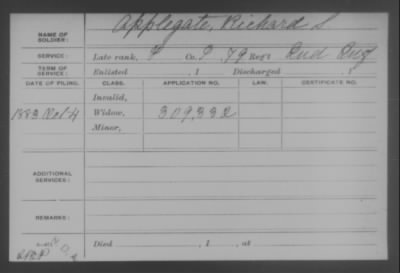 NAME OF SOLDIER: Applegate, Richard S
SERVICE: Late rank, P Co. P, 79 Reg't Ind Inf
TERM OF SERVICE: Enlisted , 1 Discharged , 1
DATE OF FILING. CLASS. APPLICATION NO. LAW. CERTIFICATE NO.
Invalid,
1883 Widow, 309,332
Minor,
ADDITIONAL SERVICES:
REMARKS:
Died , 1 , at